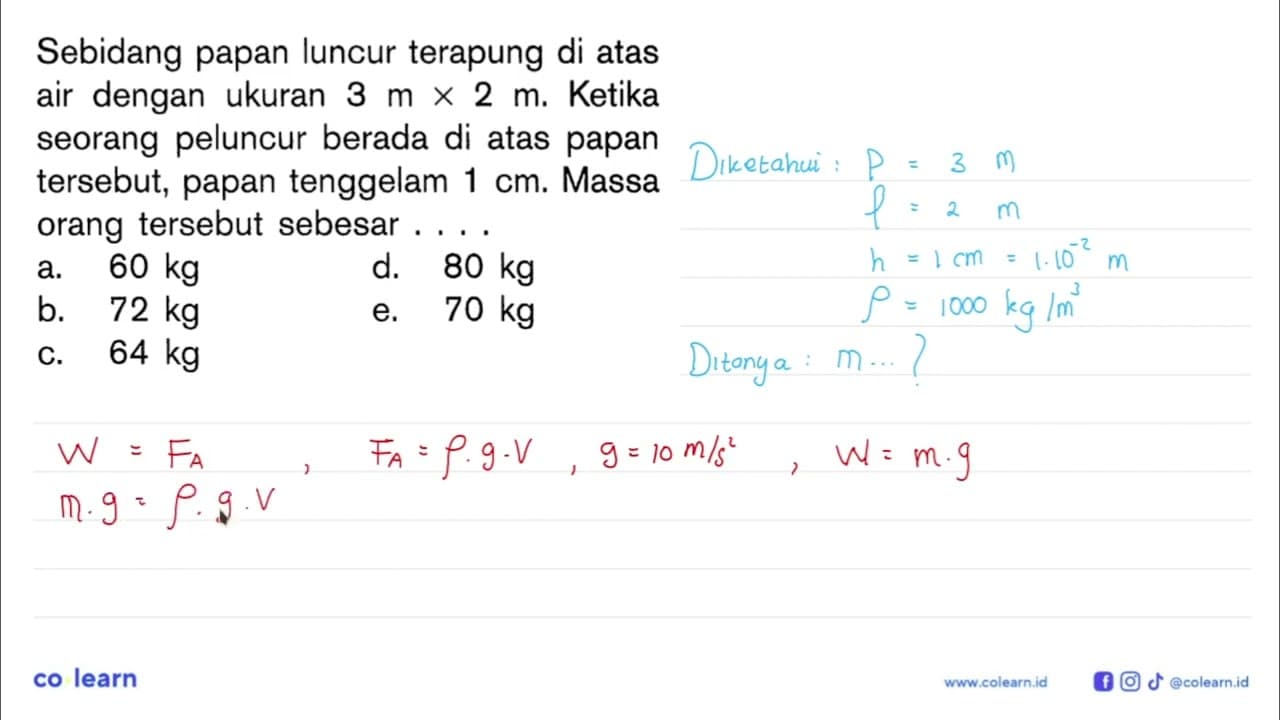 Sebidang papan luncur terapung di atas
air dengan ukuran 3 m × 2 m. Ketika
seorang peluncur berada di atas papan
tersebut, papan tenggelam 1 cm. Massa
orang tersebut sebesar . . . .
a. 60 kg d. 80 kg
b. 72 kg e. 70 kg
c. 64 kg
Diketahui : p = 3 m
l = 2 m
h = 1 cm = 1.10⁻² m
ρ = 1000 kg/m³
Ditanya : m ... ?
W = F_A , F_A = ρ.g.V , g = 10 m/s² , W = m.g
m.g = ρ.g.V
co learn
www.colearn.id
@colearn.id